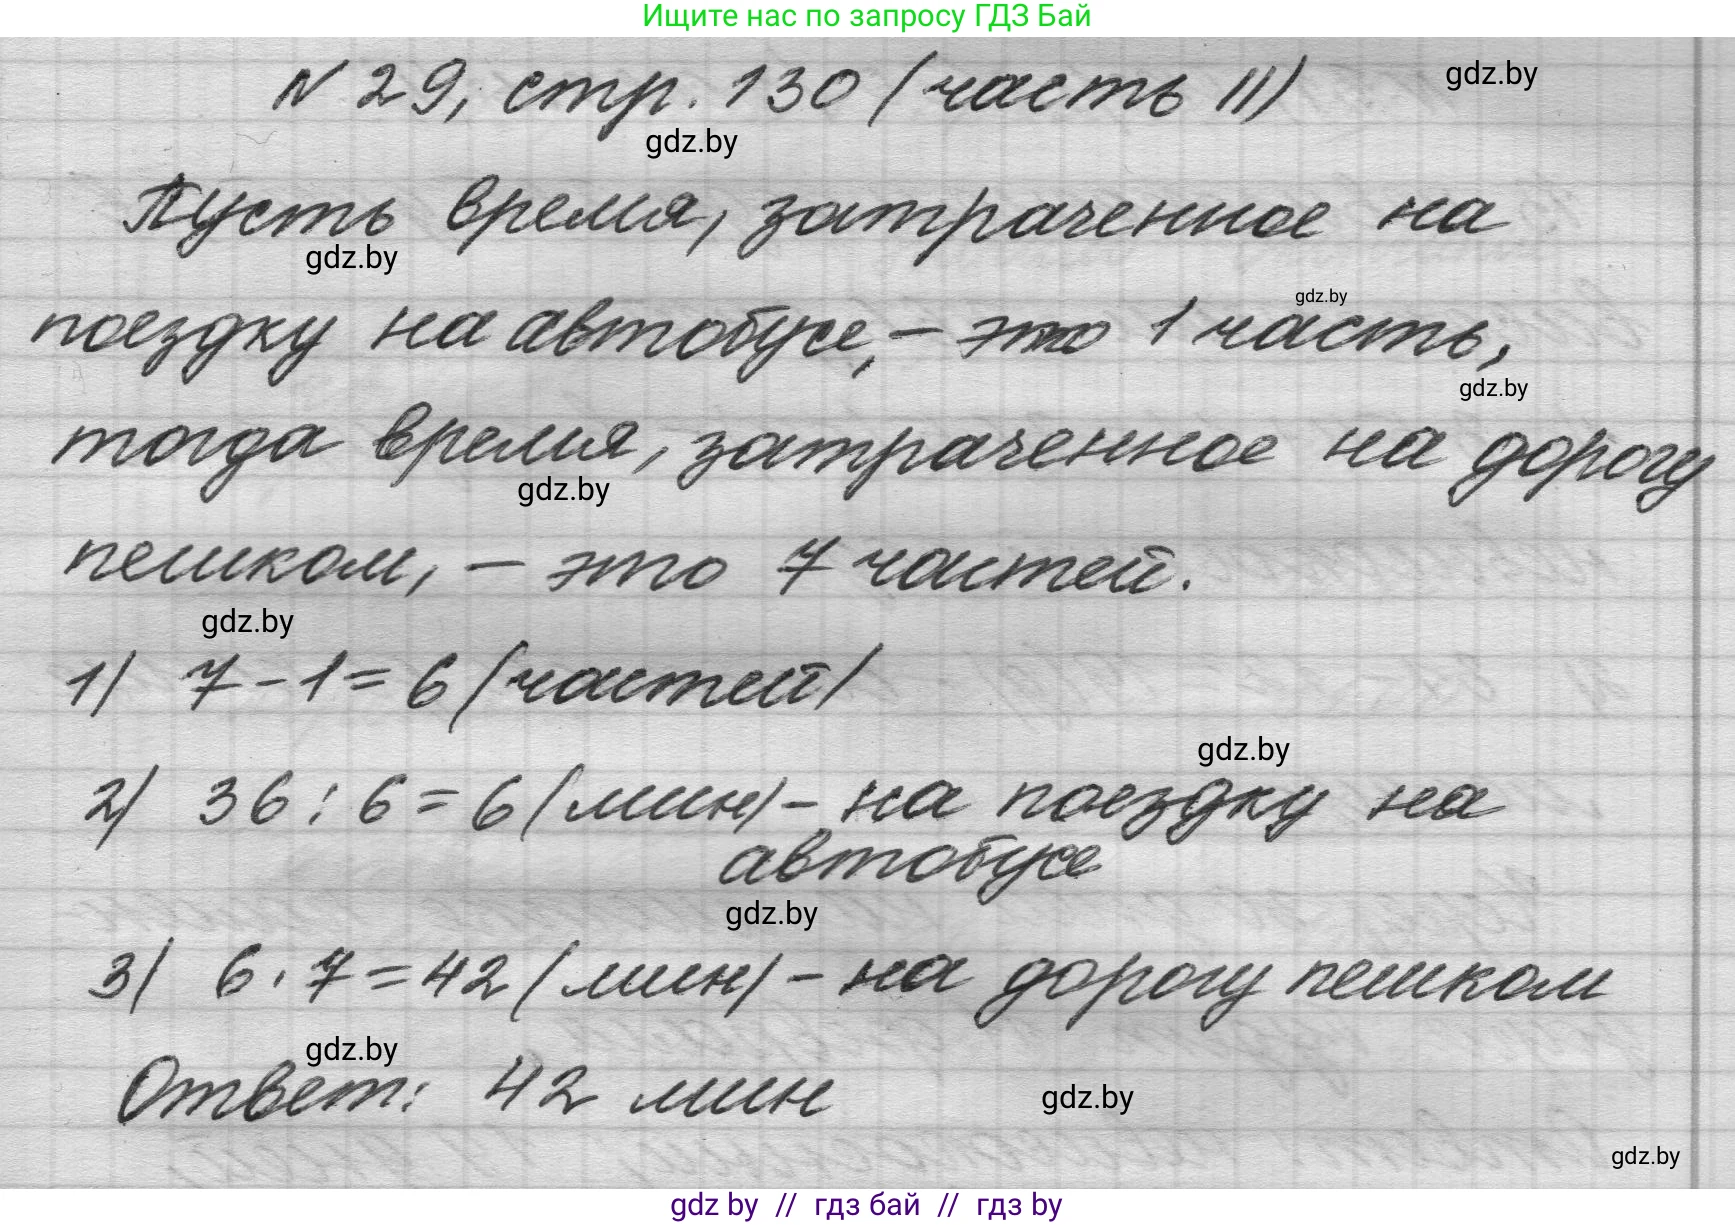 Ищите нас по запросу ГДЗ Бай
N 29, стр. 130 (часть II)
gdz.by
gdz.by
Пусть время, затраченное на
gdz.by
gdz.by
поездку на автобусе, – это 1 часть,
gdz.by
тогда время, затраченное на дорогу
gdz.by
пешком, – это 7 частей.
gdz.by
1) 7 - 1 = 6 (частей)
gdz.by
2) 36 : 6 = 6 (мин) - на поездку на
автобусе
gdz.by
3) 6 · 7 = 42 (мин) - на дорогу пешком
gdz.by
Ответ: 42 мин
gdz.by
gdz.by
gdz by // гдз бай // гдз by